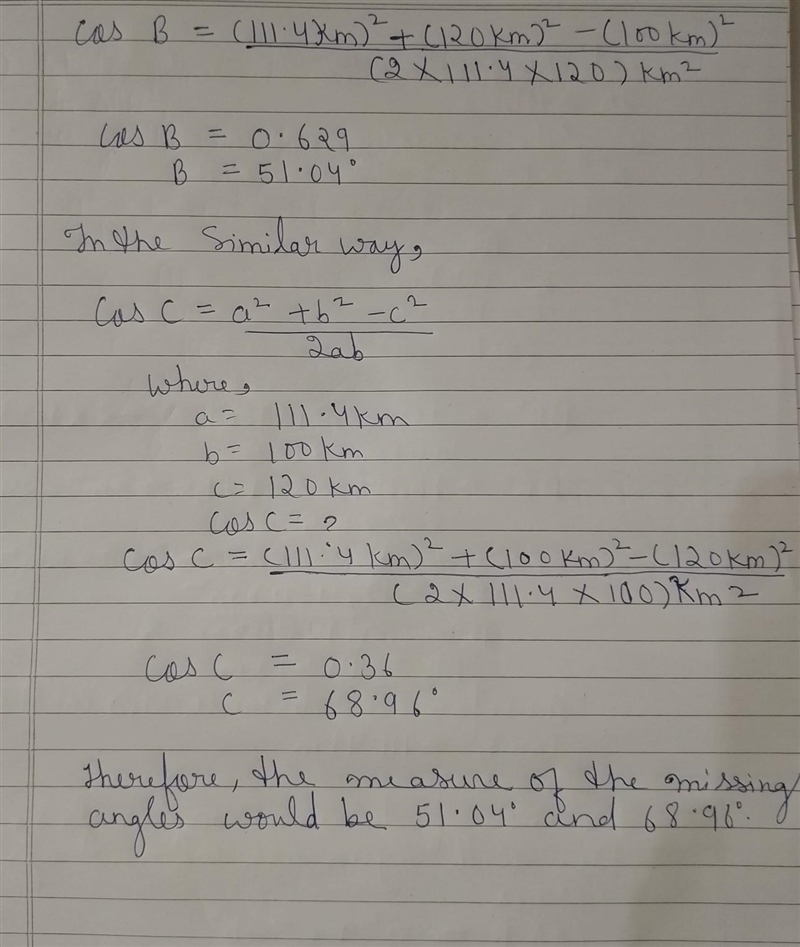 Cos B = (111.4km)² + (120km)² - (100km)²
(2 × 111.4 × 120) km²
Cos B = 0.629
B = 51.04°
In the Similar way,
Cos C = a² + b² - c²
2ab
where,
a = 111.4km
b = 100km
c = 120km
Cos C = ?
Cos C = (111.4 km)² + (100km)² - (120km)²
(2 × 111.4 × 100) km²
Cos C = 0.36
C = 68.96°
Therefore, the measure of the missing
angles would be 51.04° and 68.96°.